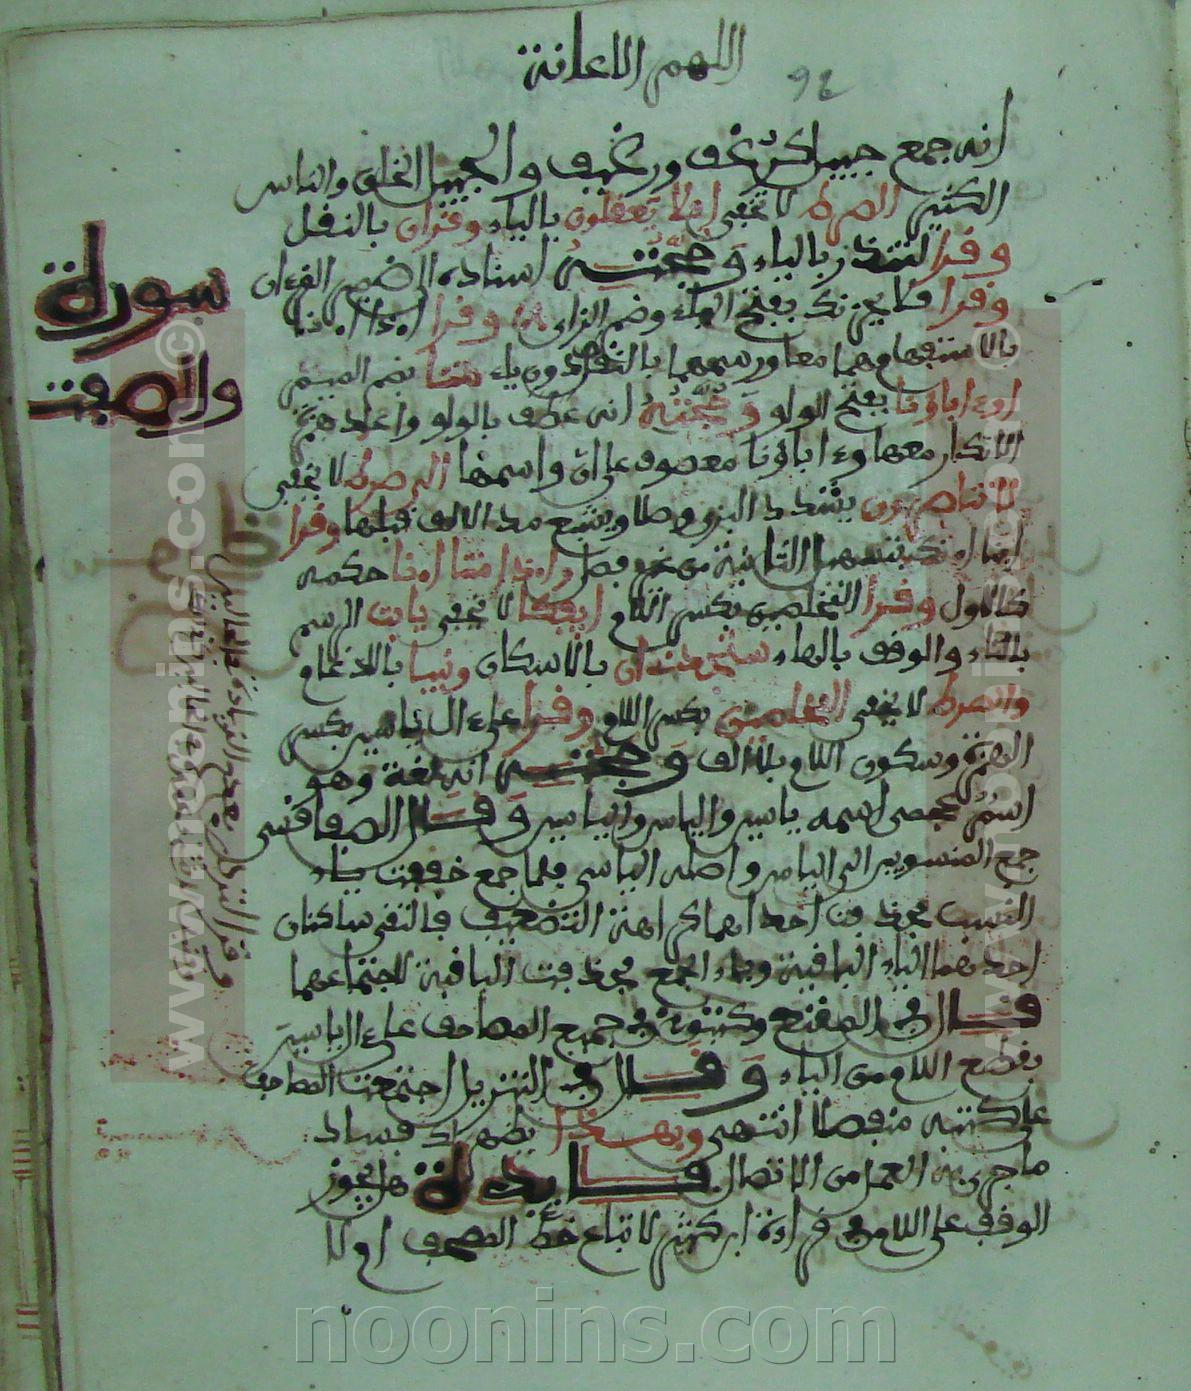 اللهم الاعانة
96
انه جمع جبيل كرغف ورغيف والجبيل الخلق والناس
الكثير الصرط لا تخفى افلا تعقلون بالياء وقران بالنقل
وقرا لتنذر بالياء وحجته اسناده الى ضمير القرءان
وقرا فلا يحزنك بفتح الياء وضم الزاي وقرا اءذا اءنا
بالاستفهام فيهما معا ورسمهما بالالف دون ياء متنا بضم الميم
اوءاباؤنا بفتح الواو وحجته انه عطف بالواو واعاد همزة
الانكار معها وءاباؤنا معطوف على ان واسمها الى صرط لا يخفى
لا تناصرون بتشديد البزي وصلا ويشبع مد الالف قبلها وقرا
ا۟ىنك بتسهيل الثانية من غير فصل اءذا متنا اءنا حكمه
كالاول وقرا المخلصين بكسر اللام ايفكا لا يخفى يابت الرسم
بالتاء والوقف بالهاء ستجدني ان بالاسكان ونبيا بالادغام
والصرط لا يخفى المخلصين بكسر اللام وقرا على ال ياسين بكسر
الهمزة وسكون اللام بلا الف وحجته انه لغة وهو
اسم عجمي اسمه ياسين والياس والياسين وقال الصفاقسي
جمع المنسوبين الى الياس واصله الياسي فلما جمع خففت ياء
النسب بحذف احداهما كراهة التضعيف فالتقى ساكنان
احدهما الياء الباقية وياء الجمع فحذفت الباقية لاجتماعهما
قال في المقنع وكتبوا في جميع المصاحف على ال ياسين
بقطع اللام من الياء وقال في التنزيل اجتمعت المصاحف
على كتبه منفصلا انتهى وبهذا يظهر لك فساد
ما جرى به العمل من الاتصال فايدة هل يجوز
الوقف على اللام في قراءة ابن كثير لاتباع خط المصحف ام لا
سورة
والصفت
www.noonins.com ©
www.noonins.com ©
noonins.com